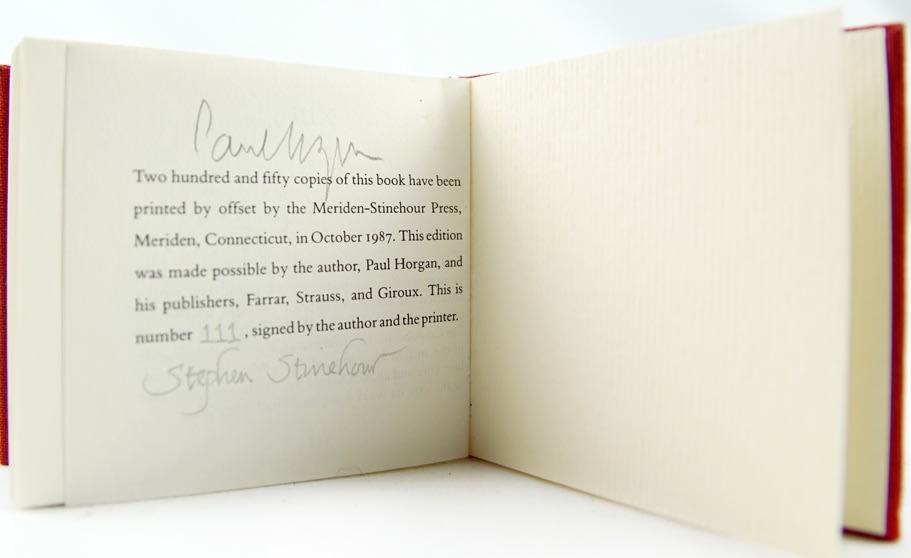 Paul Horgan
Two hundred and fifty copies of this book have been
printed by offset by the Meriden-Stinehour Press,
Meriden, Connecticut, in October 1987. This edition
was made possible by the author, Paul Horgan, and
his publishers, Farrar, Strauss, and Giroux. This is
number 111, signed by the author and the printer.
Stephen Stinehour